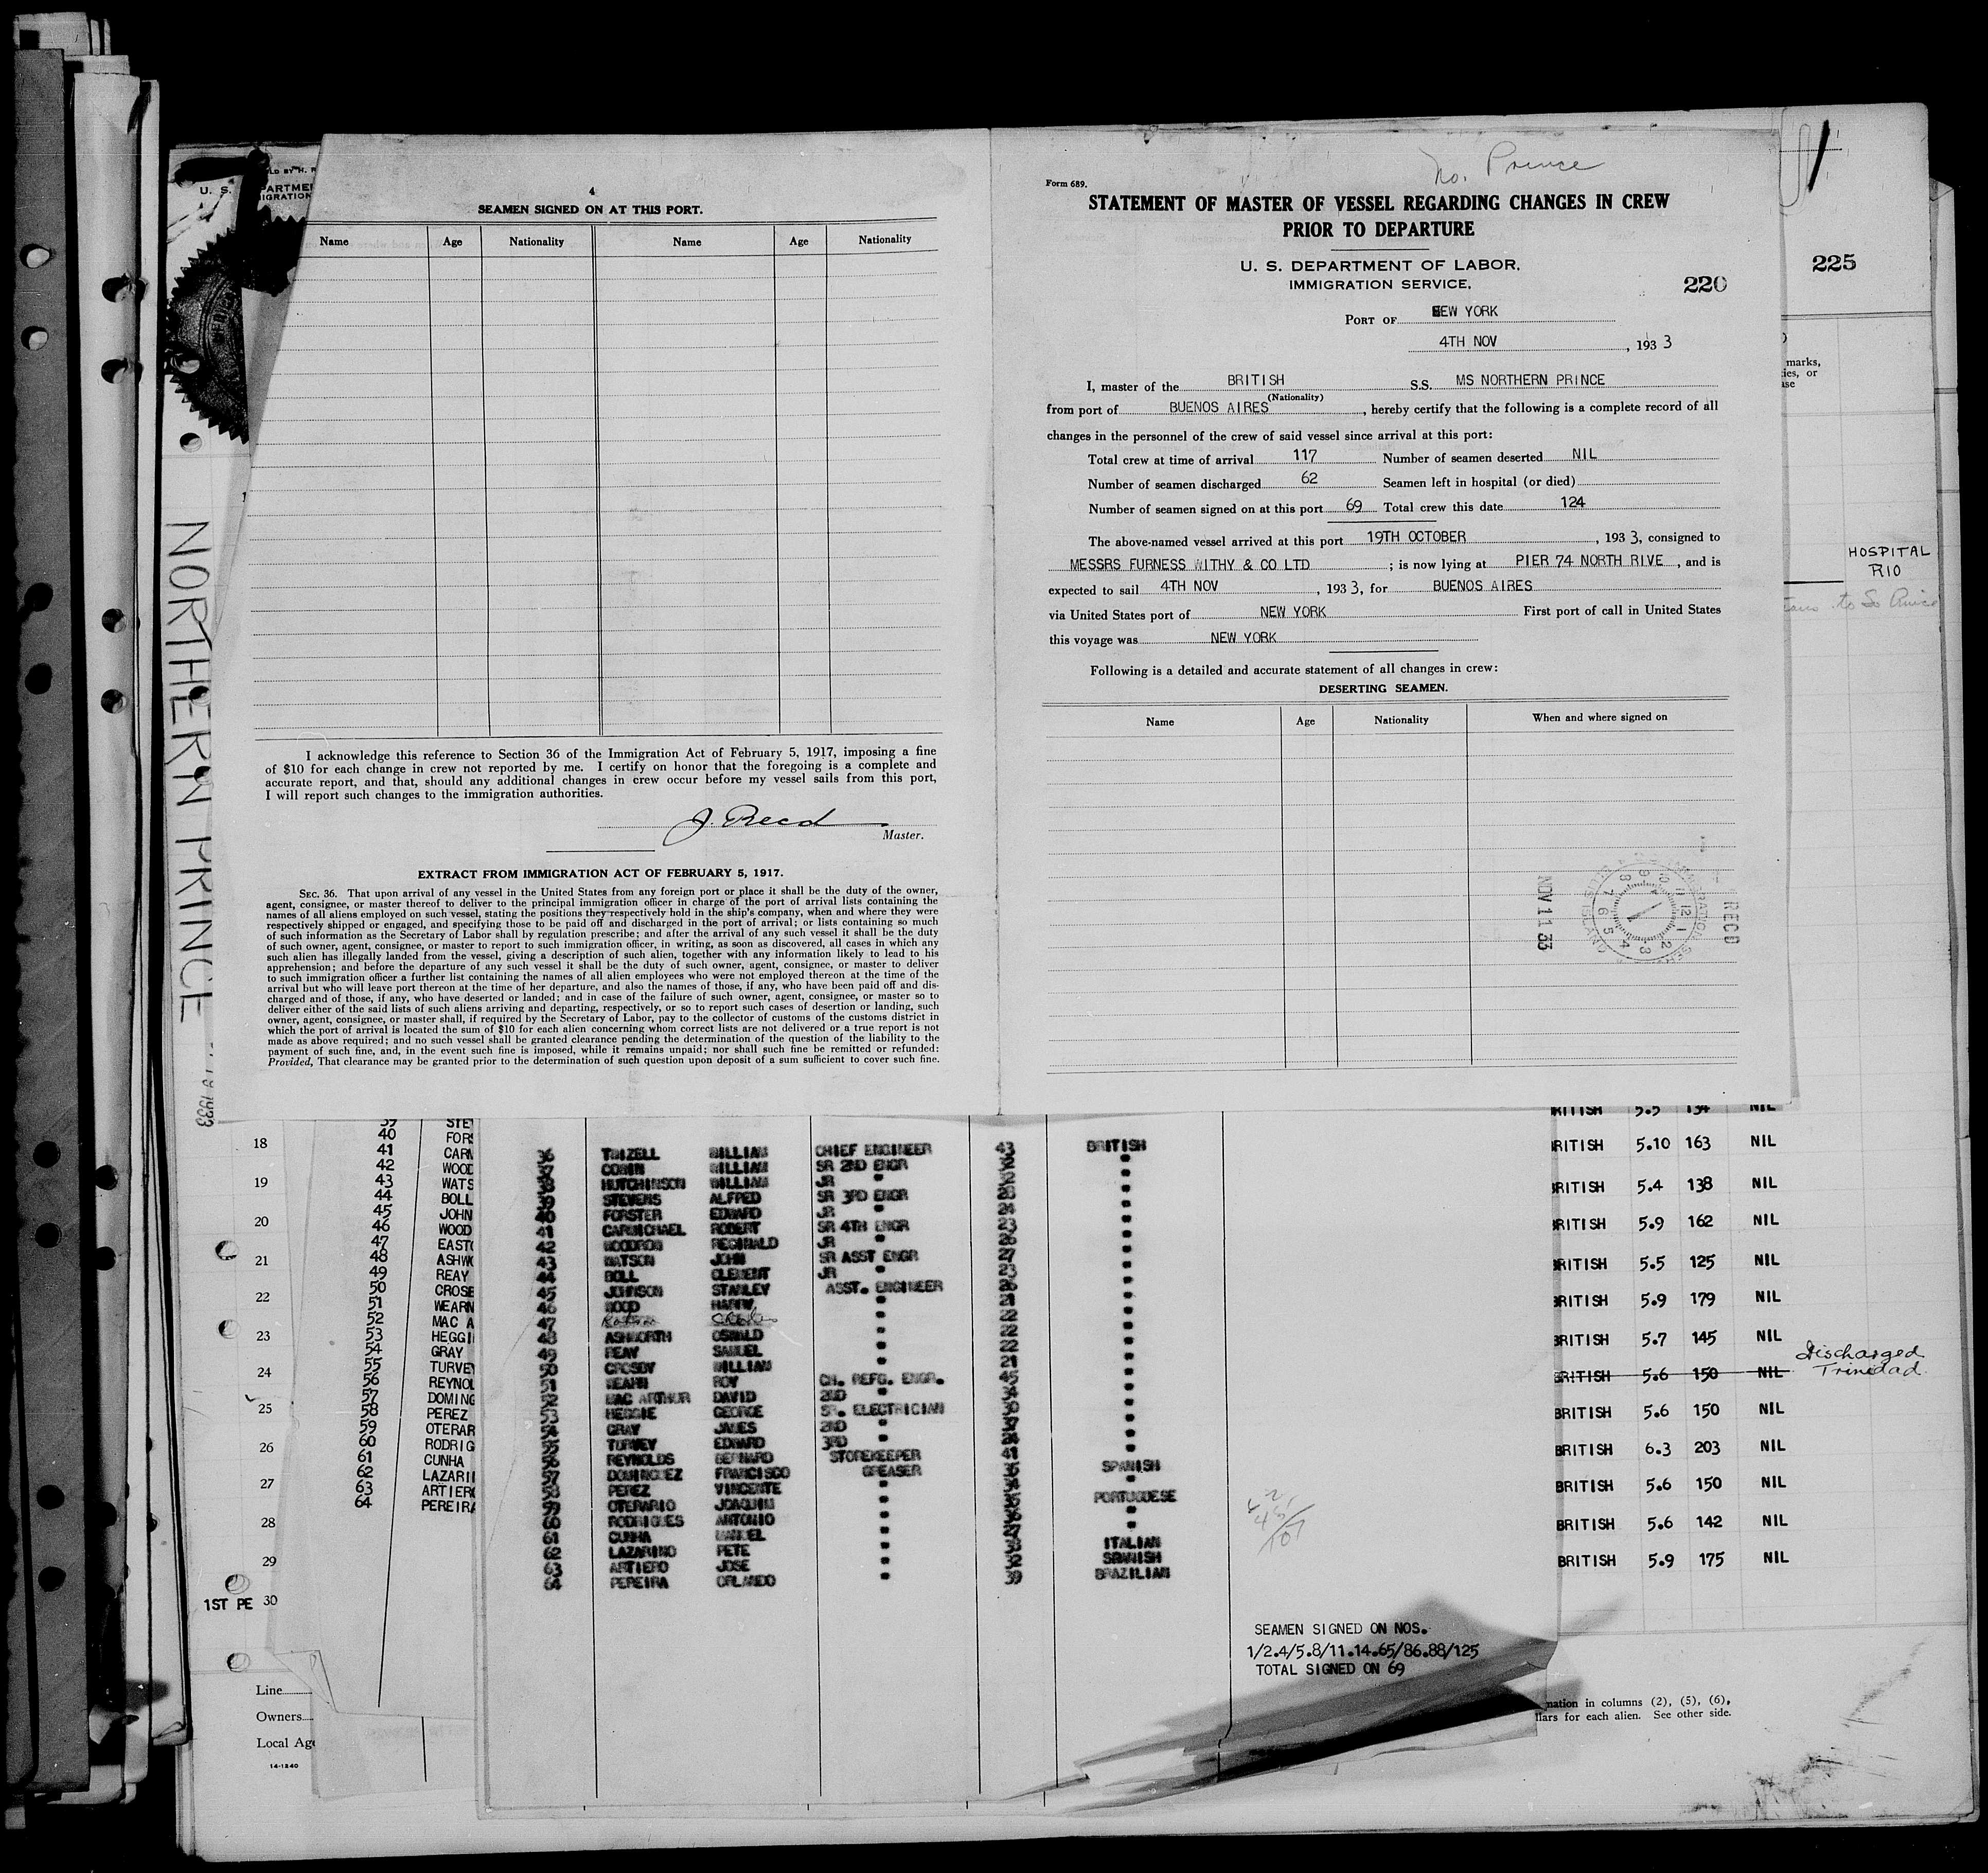 4
SEAMEN SIGNED ON AT THIS PORT.
Name Age Nationality Name Age Nationality
I acknowledge this reference to Section 36 of the Immigration Act of February 5, 1917, imposing a fine
of $10 for each change in crew not reported by me. I certify on honor that the foregoing is a complete and
accurate report, and that, should any additional changes in crew occur before my vessel sails from this port,
I will report such changes to the immigration authorities.
J. Reed
Master.
EXTRACT FROM IMMIGRATION ACT OF FEBRUARY 5, 1917.
SEC. 36. That upon arrival of any vessel in the United States from any foreign port or place it shall be the duty of the owner,
agent, consignee, or master thereof to deliver to the principal immigration officer in charge of the port of arrival lists containing the
names of all aliens employed on such vessel, stating the positions they respectively hold in the ship's company, when and where they were
respectively shipped or engaged, and specifying those to be paid off and discharged in the port of arrival; or lists containing so much
of such information as the Secretary of Labor shall by regulation prescribe; and after the arrival of any such vessel it shall be the duty
of such owner, agent, consignee, or master to report to such immigration officer, in writing, as soon as discovered, all cases in which any
such alien has illegally landed from the vessel, giving a description of such alien, together with any information likely to lead to his
apprehension; and before the departure of any such vessel it shall be the duty of such owner, agent, consignee, or master to deliver
to such immigration officer a further list containing the names of all alien employees who were not employed thereon at the time of the
arrival but who will leave port thereon at the time of her departure, and also the names of those, if any, who have been paid off and dis-
charged and of those, if any, who have deserted or landed; and in case of the failure of such owner, agent, consignee, or master so to
deliver either of the said lists of such aliens arriving and departing, respectively, or so to report such cases of desertion or landing, such
owner, agent, consignee, or master shall, if required by the Secretary of Labor, pay to the collector of customs of the customs district in
which the port of arrival is located the sum of $10 for each alien concerning whom correct lists are not delivered or a true report is not
made as above required; and no such vessel shall be granted clearance pending the determination of the question of the liability to the
payment of such fine, and, in the event such fine is imposed, while it remains unpaid; nor shall such fine be remitted or refunded:
Provided, That clearance may be granted prior to the determination of such question upon deposit of a sum sufficient to cover such fine.
No. Prince
Form 689.
STATEMENT OF MASTER OF VESSEL REGARDING CHANGES IN CREW
PRIOR TO DEPARTURE
U. S. DEPARTMENT OF LABOR,
IMMIGRATION SERVICE,
220
PORT OF NEW YORK
4TH NOV , 193 3
I, master of the BRITISH S.S. MS NORTHERN PRINCE
(Nationality)
from port of BUENOS AIRES , hereby certify that the following is a complete record of all
changes in the personnel of the crew of said vessel since arrival at this port:
Total crew at time of arrival 117 Number of seamen deserted NIL
Number of seamen discharged 62 Seamen left in hospital (or died)
Number of seamen signed on at this port 69 Total crew this date 124
The above-named vessel arrived at this port 19TH OCTOBER , 193 3, consigned to
MESSRS FURNESS WITHY & CO LTD ; is now lying at PIER 74 NORTH RIVE , and is
expected to sail 4TH NOV , 193 3, for BUENOS AIRES
via United States port of NEW YORK First port of call in United States
this voyage was NEW YORK
Following is a detailed and accurate statement of all changes in crew:
DESERTING SEAMEN.
Name Age Nationality When and where signed on
RECD
NOV 11 33
225
marks,
ies, or
HOSPITAL
RIO
U. S.
NORTHERN PRINCE
1933
39 STE
40 FOR
41 CARM
42 WOOD
43 WATS
44 BOLL
45 JOHN
46 WOOD
47 EASTO
48 ASHWO
49 REAY
50 CROSB
51 WEARN
52 MAC A
53 HEGGI
54 GRAY
55 TURVEY
56 REYNOL
57 DOMING
58 PEREZ
59 OTERAR
60 RODRIG
61 CUNHA
62 LAZARI
63 ARTIERO
64 PEREIRA
36 TWIZELL WILLIAM CHIEF ENGINEER 43 BRITISH
CORIN WILLIAM SR 2ND ENGR "
HUTCHINSON WILLIAM JR " "
STEVENS ALFRED SR 3RD ENGR "
40 FORSTER EDWARD JR " 24 "
41 CARMICHAEL ROBERT SR 4TH ENGR 23 "
42 WOODROW REGINALD JR " "
43 WATSON JOHN SR ASST ENGR 27 "
44 BOLL CLEMENT JR " 23 "
45 JOHNSON STANLEY ASST. ENGINEER "
46 WOOD HARRY " 21 "
47 Charles " 22 "
48 ASHWORTH OSWALD " 22 "
49 REAY SAMUEL " 22 "
50 CROSBY WILLIAM " 21 "
51 WEARN ROY CH. REFG. ENGR. 45 "
52 MAC ARTHUR DAVID 2ND " 34 "
53 HEGGIE GEORGE SR. ELECTRICIAN "
54 GRAY JAMES 2ND " "
55 TURVEY EDWARD 3RD " 24 "
56 REYNOLDS BERNARD STOREKEEPER 41 "
57 DOMINGUEZ FRANCISCO GREASER SPANISH
58 PEREZ VINCENTE " "
59 OTERARIO JOAQUIM " PORTUGUESE
60 RODRIGUES ANTONIO " "
61 CUNHA MANUEL " "
62 LAZARINO PETE " ITALIAN
63 ARTIERO JOSE " 32 SPANISH
64 PEREIRA ORLANDO " 39 BRAZILIAN
62
45
107
SEAMEN SIGNED ON NOS.
1/2.4/5.8/11.14.65/86.88/125
TOTAL SIGNED ON 69
BRITISH 5.5 134 NIL
BRITISH 5.10 163 NIL
BRITISH 5.4 138 NIL
BRITISH 5.9 162 NIL
BRITISH 5.5 125 NIL
BRITISH 5.9 179 NIL
BRITISH 5.7 145 NIL
BRITISH 5.6 150 NIL Discharged Trinidad
BRITISH 5.6 150 NIL
BRITISH 6.3 203 NIL
BRITISH 5.6 150 NIL
BRITISH 5.6 142 NIL
BRITISH 5.9 175 NIL
18
19
20
21
22
23
24
25
26
27
28
29
1ST PE 30
Line
Owners
Local Age
14-1240
mation in columns (2), (5), (6),
llars for each alien. See other side.